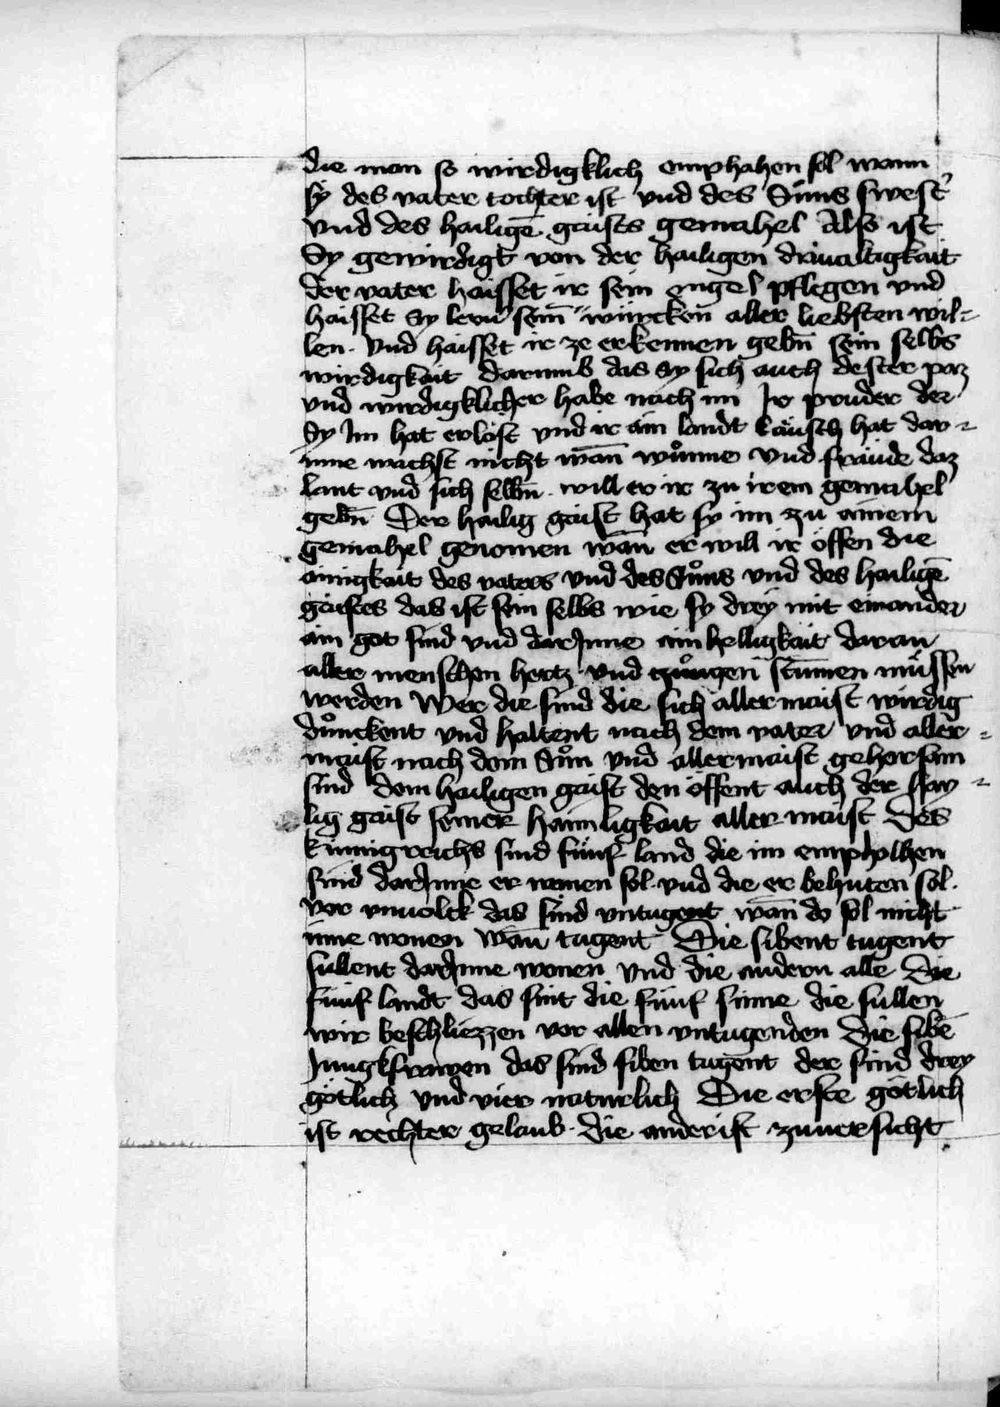 die man so wirdigklich emphahen sol wann
sy des vater tochter ist vnd des Suns swest̉
vnd des hailigē gaists gemahel Also ist
Sy gewirdigt von der hailigen driualtigkait
der vater haisset ir sein engel pflegen vnd
haisset Sy lern seinē würcken aller liebsten wil⸗
len. vnd haisset ir ze erkennen gebn̄ sein selbs
wirdigkait darumb das Sy sich auch dester paz
vnd wirdigklicher habe nach im Ir pruder der
Sy Im hat erlöst vnd ir ain landt käusch hat dar⸗
inne wachst nicht wān wůnne vnd fräude daz
lant vnd sich selbn̄. will er ir zu irem gemahel
gebn̄ Der hailig gaist hat sy im zu ainem
gemahel genomen wān er will ir öffen die
ainigkait des vaters vnd des Sůns vnd des hailigē
gaistes das ist sein selbs wie sy drey mit einander
ain got sind vnd darJnne ainhelligkait daran
aller menschen hertz vnd zůngen stummen müssen
werden Wer die sind die sich aller maist wirdig
důnckent vnd haltent nach dem vater vnd aller⸗
maist nach dem Sůn vnd allermaist gehorsam
sind dem hailigen gaist den öffent auch der hay⸗
lig gaist seiner haimligkait aller maist Des
künigreichs sind fünf land die im empholhen
sind darJnne er wonen sol. vnd die er behuten sol.
vor vnuolck das sind vntugent wān do sol nicht
inne wonen wān tugent Die sibent tugent
sullent darJnne wonen vnd die andern alle Die
fünf landt das sint die fünf sinne die sullen
wir beschliezzen vor allen vntugenden Die sibē
Jungkfrawen das sind siben tugent der sind drey
götlich vnd vier naturlich Die erste götlich
ist rechter gelaub. die ander ist zuuersicht